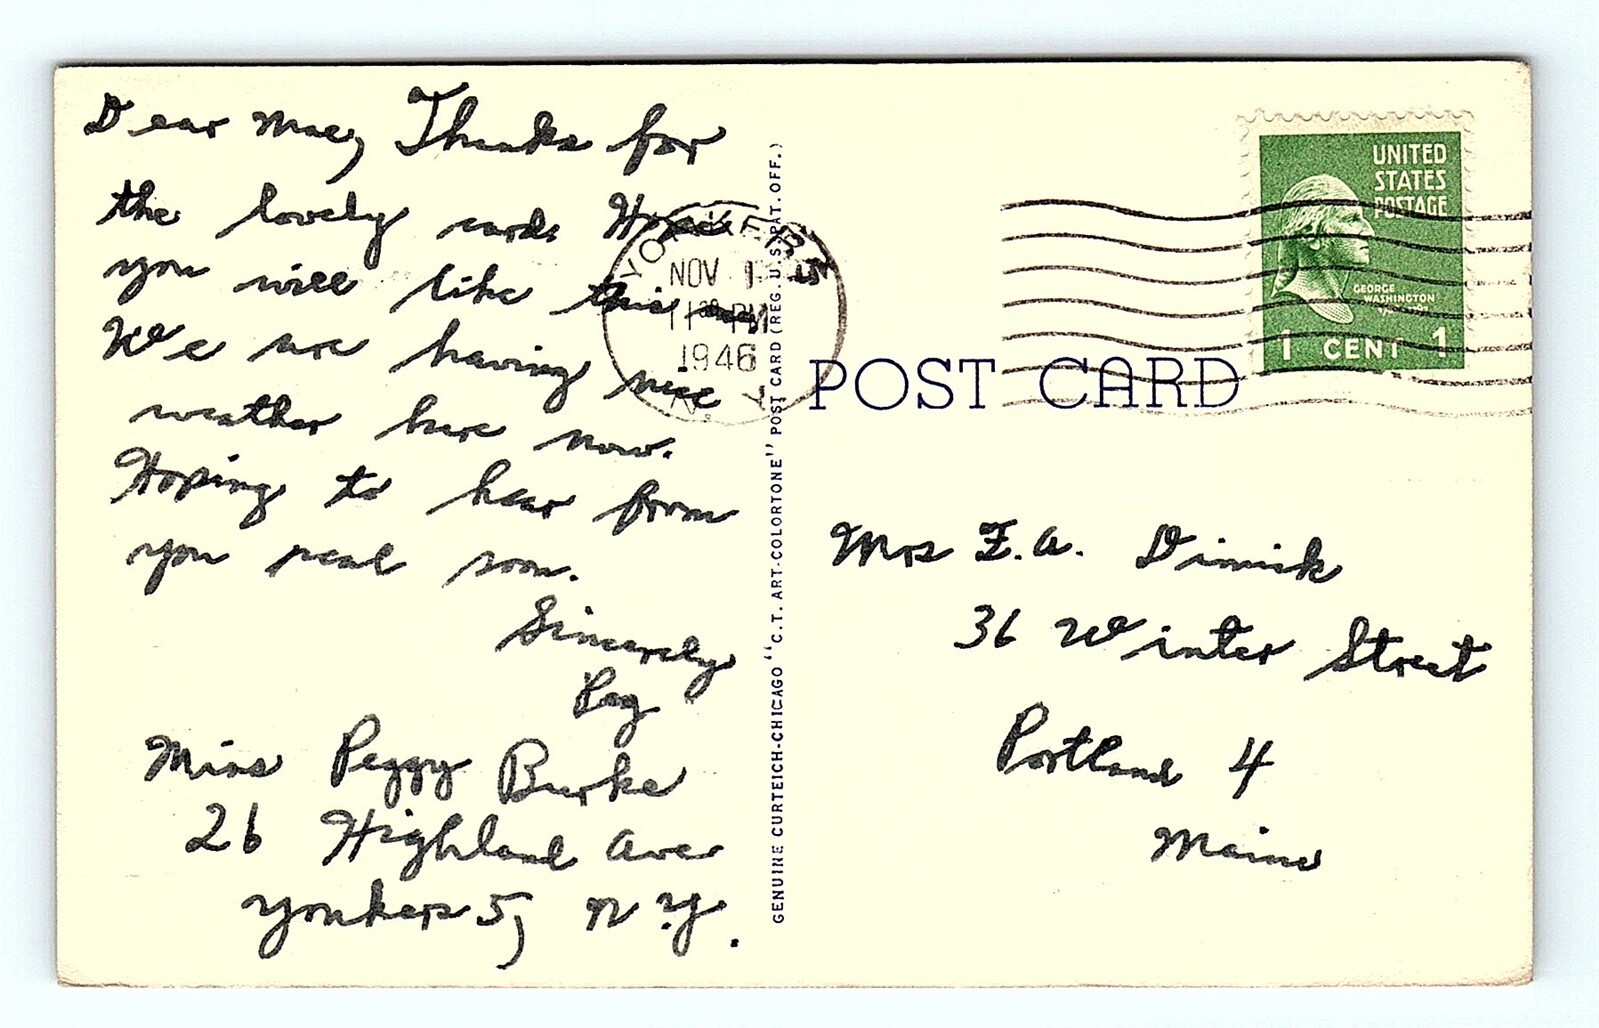 Dear Mae, Thanks for
the lovely card. Hope
you will like this
We are having nice
weather here now.
Hoping to hear from
you real soon.
Sincerely
Peg
Miss Peggy Burke
26 Highland Ave
Yonkers 5, N.Y.
YONKERS
NOV 1
11 30 PM
1946
N. Y.
GENUINE CURTEICH-CHICAGO "C.T. ART-COLORTONE" POST CARD (REG. U.S. PAT. OFF.)
POST CARD
UNITED
STATES
POSTAGE
GEORGE
WASHINGTON
1 CENT 1
Mrs F.A. Dimik
36 Winter Street
Portland 4
Maine